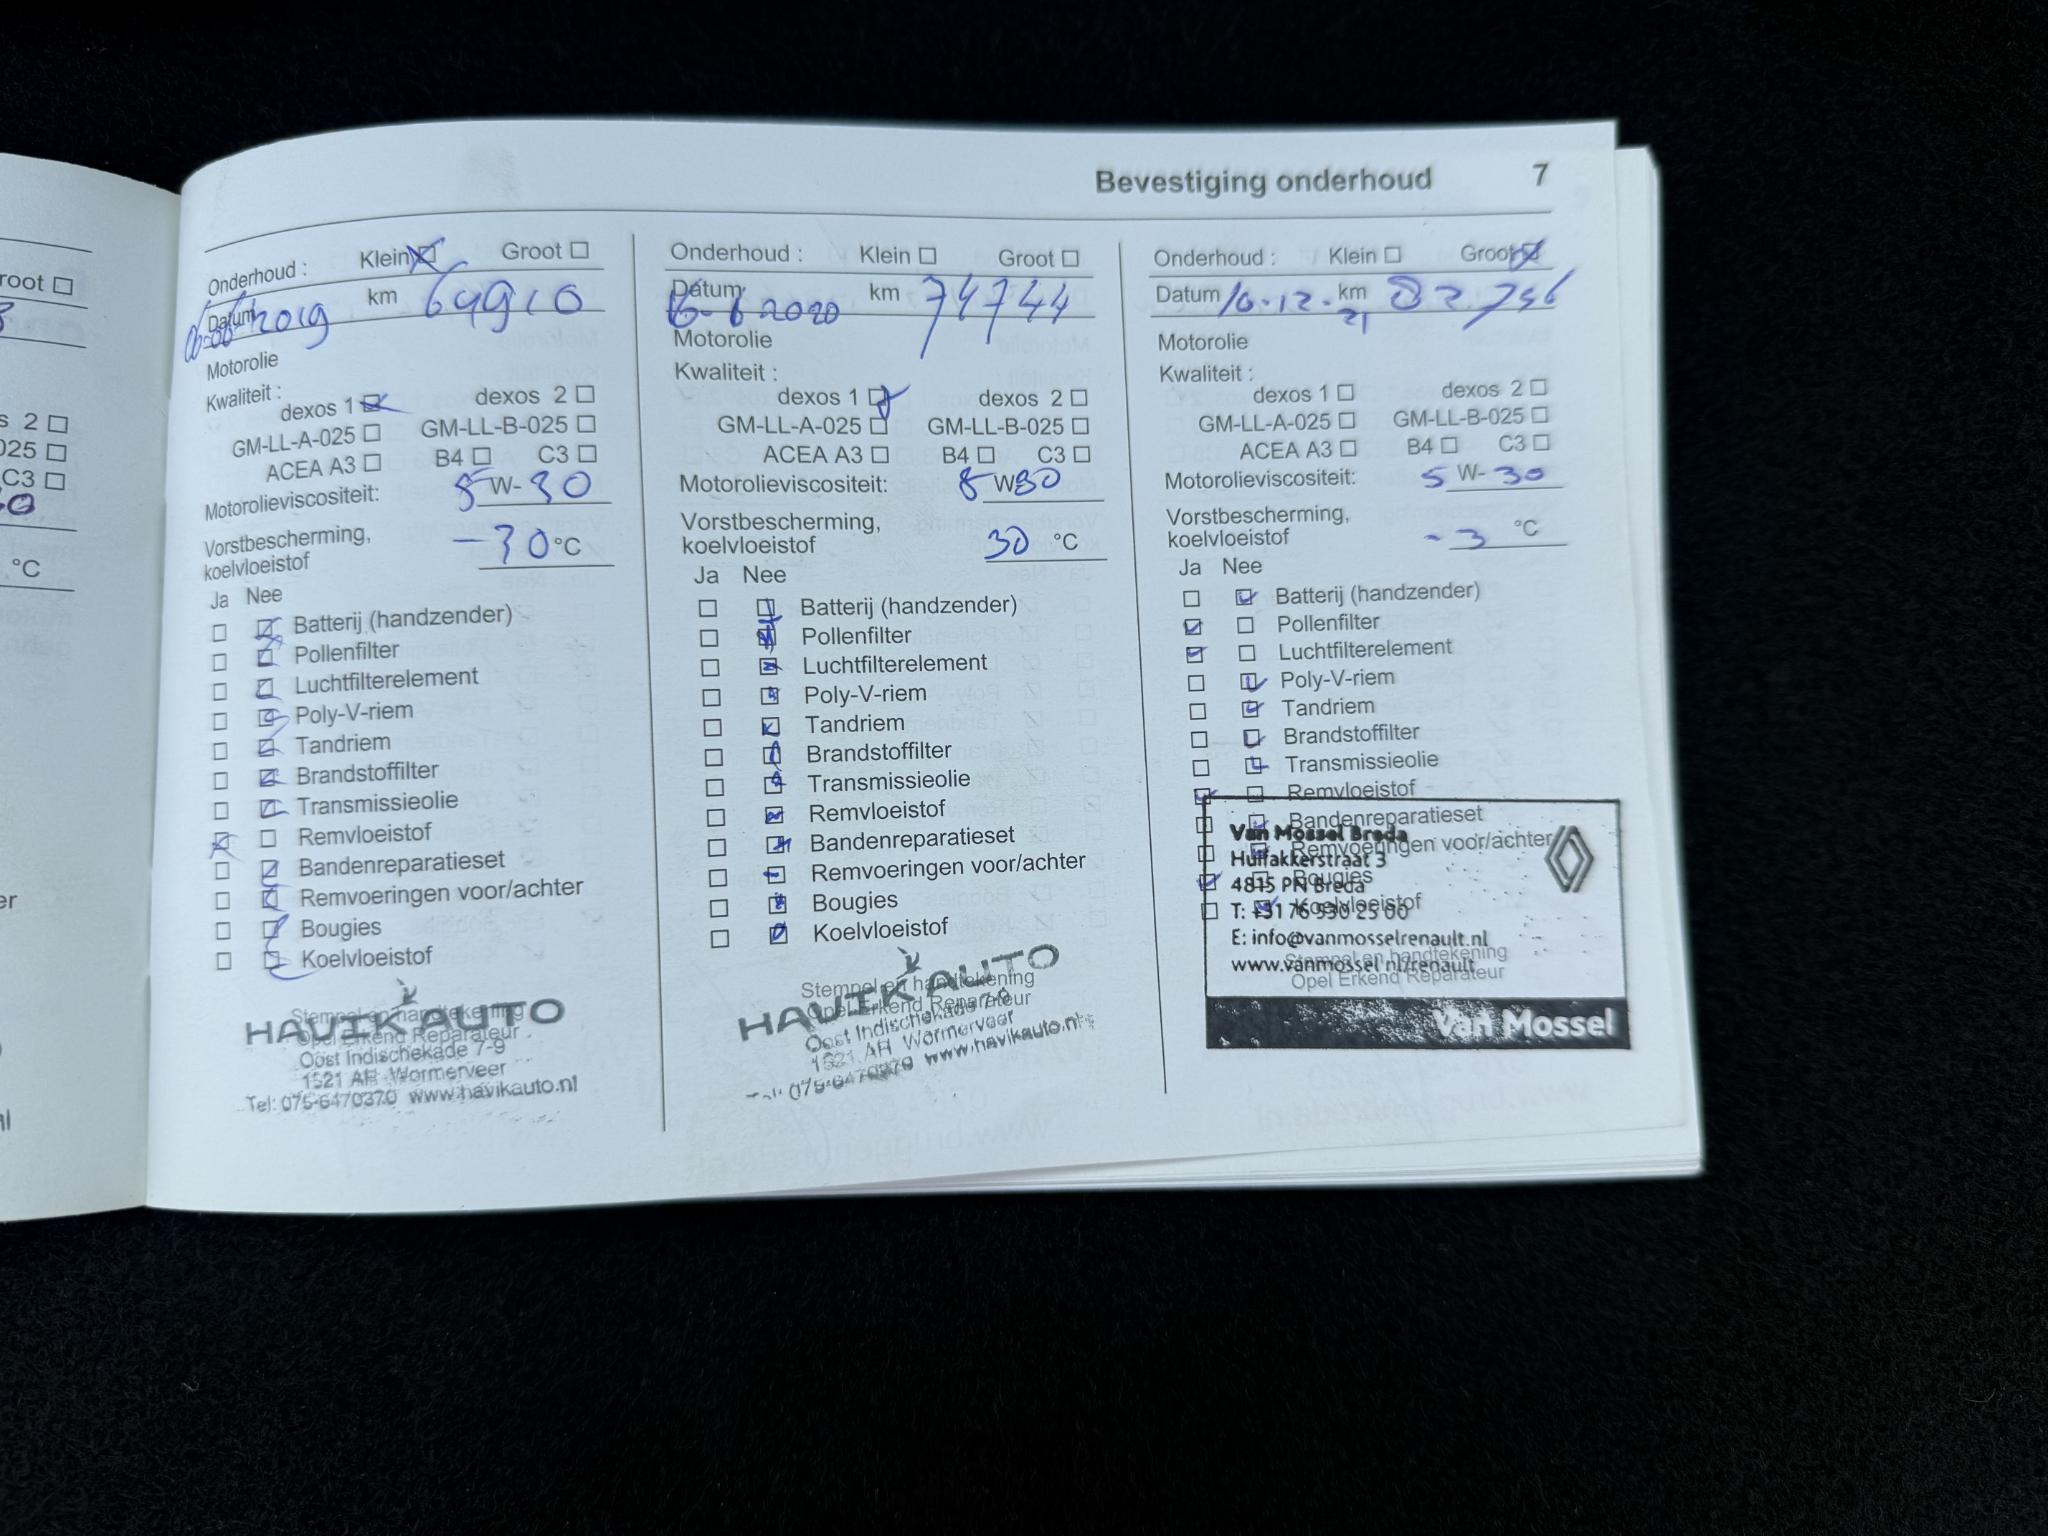 Bevestiging onderhoud 7
root ☐
s 2 ☐
025 ☐
C3 ☐
°C
Onderhoud : Klein ☒ Groot ☐
Datum 2019 km 69910
Motorolie
Kwaliteit :
dexos 1 ☑ dexos 2 ☐
GM-LL-A-025 ☐ GM-LL-B-025 ☐
ACEA A3 ☐ B4 ☐ C3 ☐
Motorolieviscositeit: 5 W-30
Vorstbescherming,
koelvloeistof -30 °C
Ja Nee
☐ ☑ Batterij (handzender)
☐ ☑ Pollenfilter
☐ ☑ Luchtfilterelement
☐ ☑ Poly-V-riem
☐ ☑ Tandriem
☐ ☑ Brandstoffilter
☐ ☑ Transmissieolie
☒ ☐ Remvloeistof
☐ ☑ Bandenreparatieset
☐ ☑ Remvoeringen voor/achter
☐ ☑ Bougies
☐ ☑ Koelvloeistof
Stempel en handtekening
Opel Erkend Reparateur
HAVIK AUTO
Oost Indischekade 7-9
1521 AH Wormerveer
Tel: 075-6470370 www.havikauto.nl
Onderhoud : Klein ☐ Groot ☐
Datum 6-6 2020 km 74744
Motorolie
Kwaliteit :
dexos 1 ☑ dexos 2 ☐
GM-LL-A-025 ☐ GM-LL-B-025 ☐
ACEA A3 ☐ B4 ☐ C3 ☐
Motorolieviscositeit: 5 W30
Vorstbescherming,
koelvloeistof 30 °C
Ja Nee
☐ ☑ Batterij (handzender)
☐ ☑ Pollenfilter
☐ ☑ Luchtfilterelement
☐ ☑ Poly-V-riem
☐ ☑ Tandriem
☐ ☑ Brandstoffilter
☐ ☑ Transmissieolie
☐ ☑ Remvloeistof
☐ ☑ Bandenreparatieset
☐ ☑ Remvoeringen voor/achter
☐ ☑ Bougies
☐ ☑ Koelvloeistof
Stempel en handtekening
Opel Erkend Reparateur
HAVIK AUTO
Oost Indischekade 7-9
1521 AH Wormerveer
Tel: 075-6470370 www.havikauto.nl
Onderhoud : Klein ☐ Groot ☒
Datum 10-12-21 km 82.756
Motorolie
Kwaliteit :
dexos 1 ☐ dexos 2 ☐
GM-LL-A-025 ☐ GM-LL-B-025 ☐
ACEA A3 ☐ B4 ☐ C3 ☐
Motorolieviscositeit: 5 W-30
Vorstbescherming,
koelvloeistof -3 °C
Ja Nee
☐ ☑ Batterij (handzender)
☑ ☐ Pollenfilter
☑ ☐ Luchtfilterelement
☐ ☑ Poly-V-riem
☐ ☑ Tandriem
☐ ☑ Brandstoffilter
☐ ☑ Transmissieolie
☑ ☐ Remvloeistof
☐ ☑ Bandenreparatieset
☐ ☑ Remvoeringen voor/achter
☑ ☐ Bougies
☐ ☑ Koelvloeistof
Stempel en handtekening
Opel Erkend Reparateur
Van Mossel Breda
Huifakkerstraat 3
4815 PN Breda
T: +31 76 530 25 00
E: info@vanmosselrenault.nl
www.vanmossel.nl/renault
Van Mossel